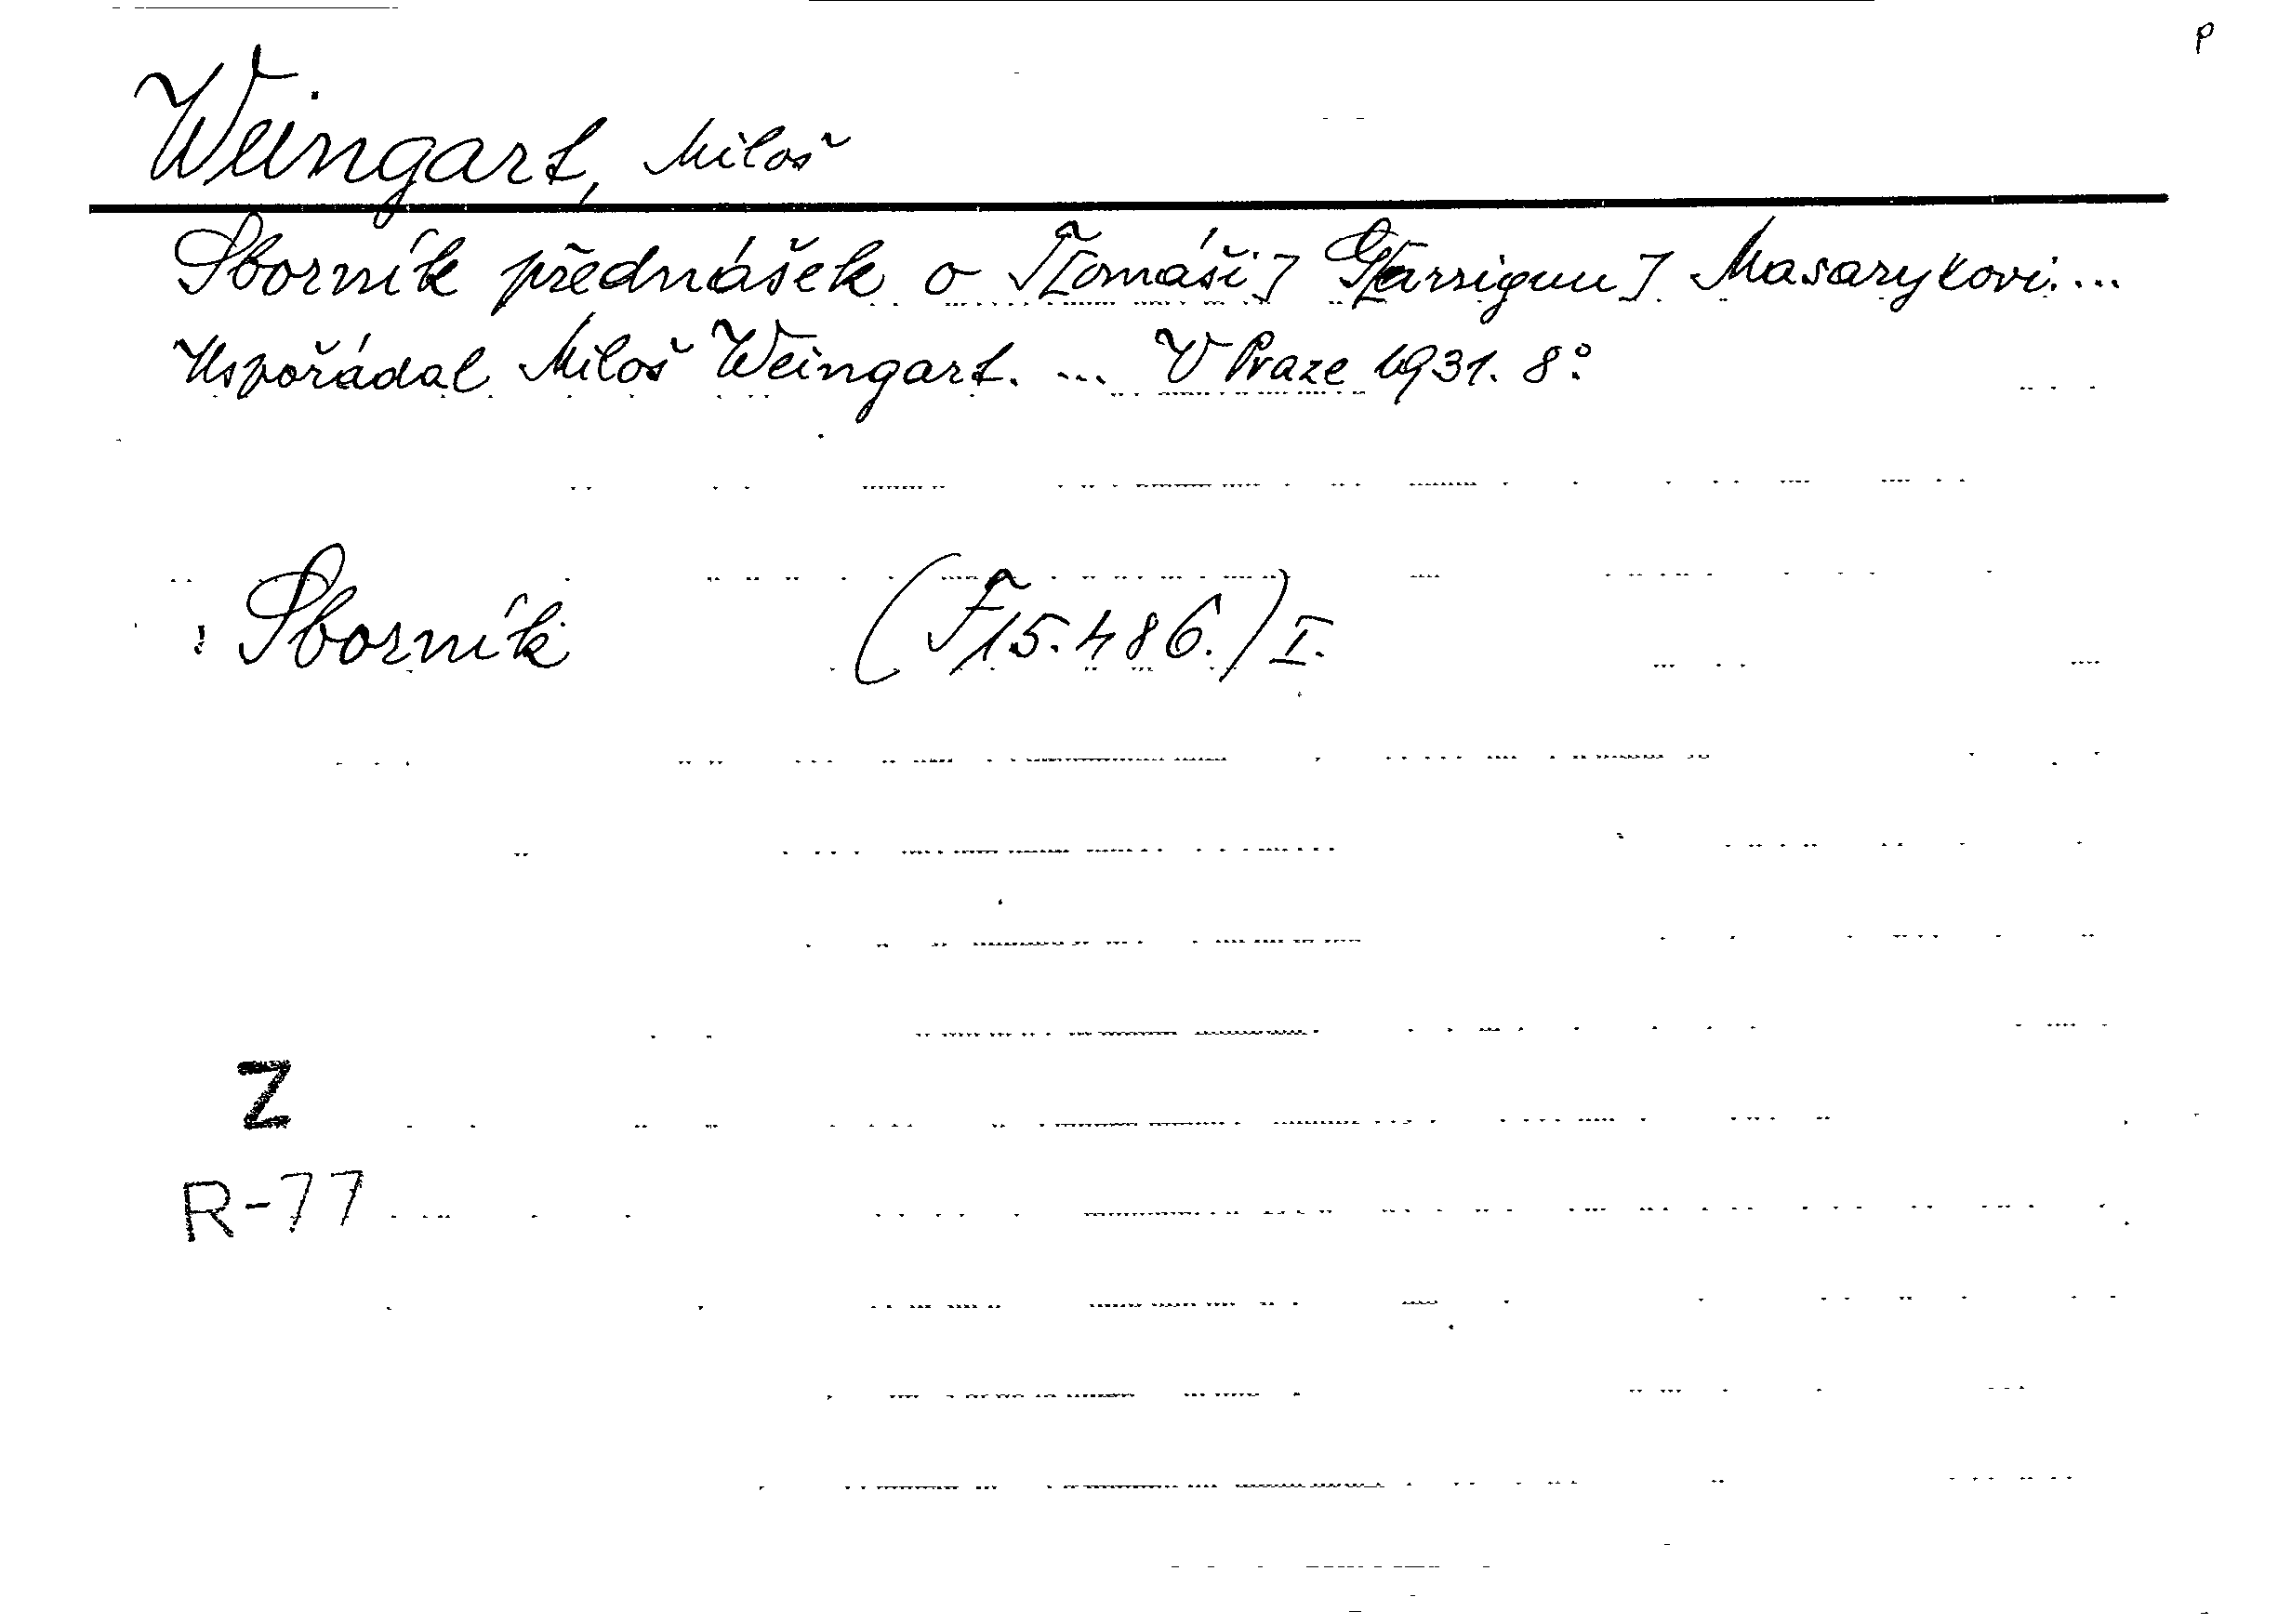 p
Weingart, Miloš
Sborník přednášek o T[omáši] G[arriguu] Masarykovi. ...
Uspořádal Miloš Weingart. ... V Praze 1931. 8°.
Sborník (F 15.486.) I.
Z
R-77